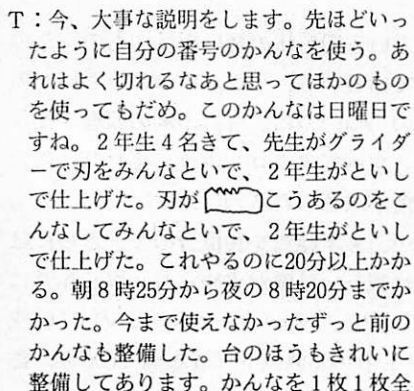 T：今、大事な説明をします。先ほどいっ
たように自分の番号のかんなを使う。あ
れはよく切れるなあと思ってほかのもの
を使ってもだめ。このかんなは日曜日で
すね。2年生4名きて、先生がグライダ
ーで刃をみんなといで、2年生がといし
で仕上げた。刃がこうあるのをこ
んなしてみんなといで、2年生がといし
で仕上げた。これやるのに20分以上かか
る。朝8時25分から夜の8時20分までか
かった。今まで使えなかったずっと前の
かんなも整備した。台のほうもきれいに
整備してあります。かんなを1枚1枚全